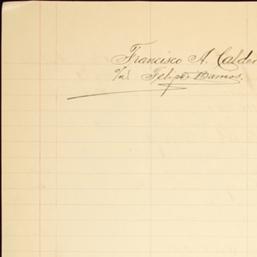 Francisco A. Calder
Felipe Ramos.